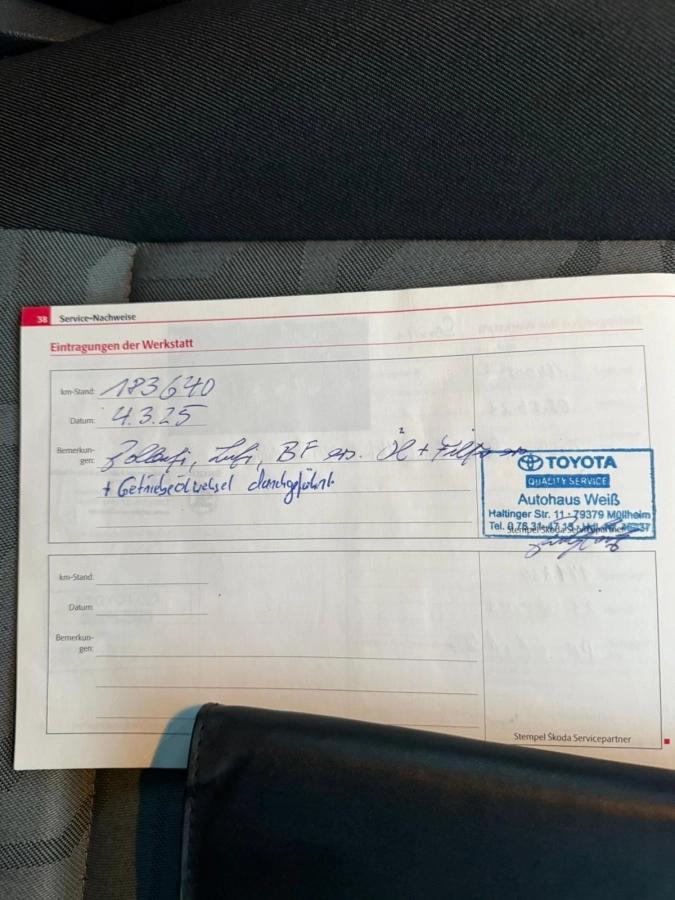 38 Service-Nachweise
Eintragungen der Werkstatt
km-Stand: 183640
Datum: 4.3.25
Bemerkun-
gen: Pollenfi, Lufi, BF ern. Öl + Filter ern
+ Getriebeölwechsel durchgeführt.
TOYOTA
QUALITY SERVICE
Autohaus Weiß
Haltinger Str. 11 · 79379 Müllheim
Tel. 0 76 31
Stempel Skoda Servicepartner
km-Stand:
Datum:
Bemerkun-
gen:
Stempel Škoda Servicepartner